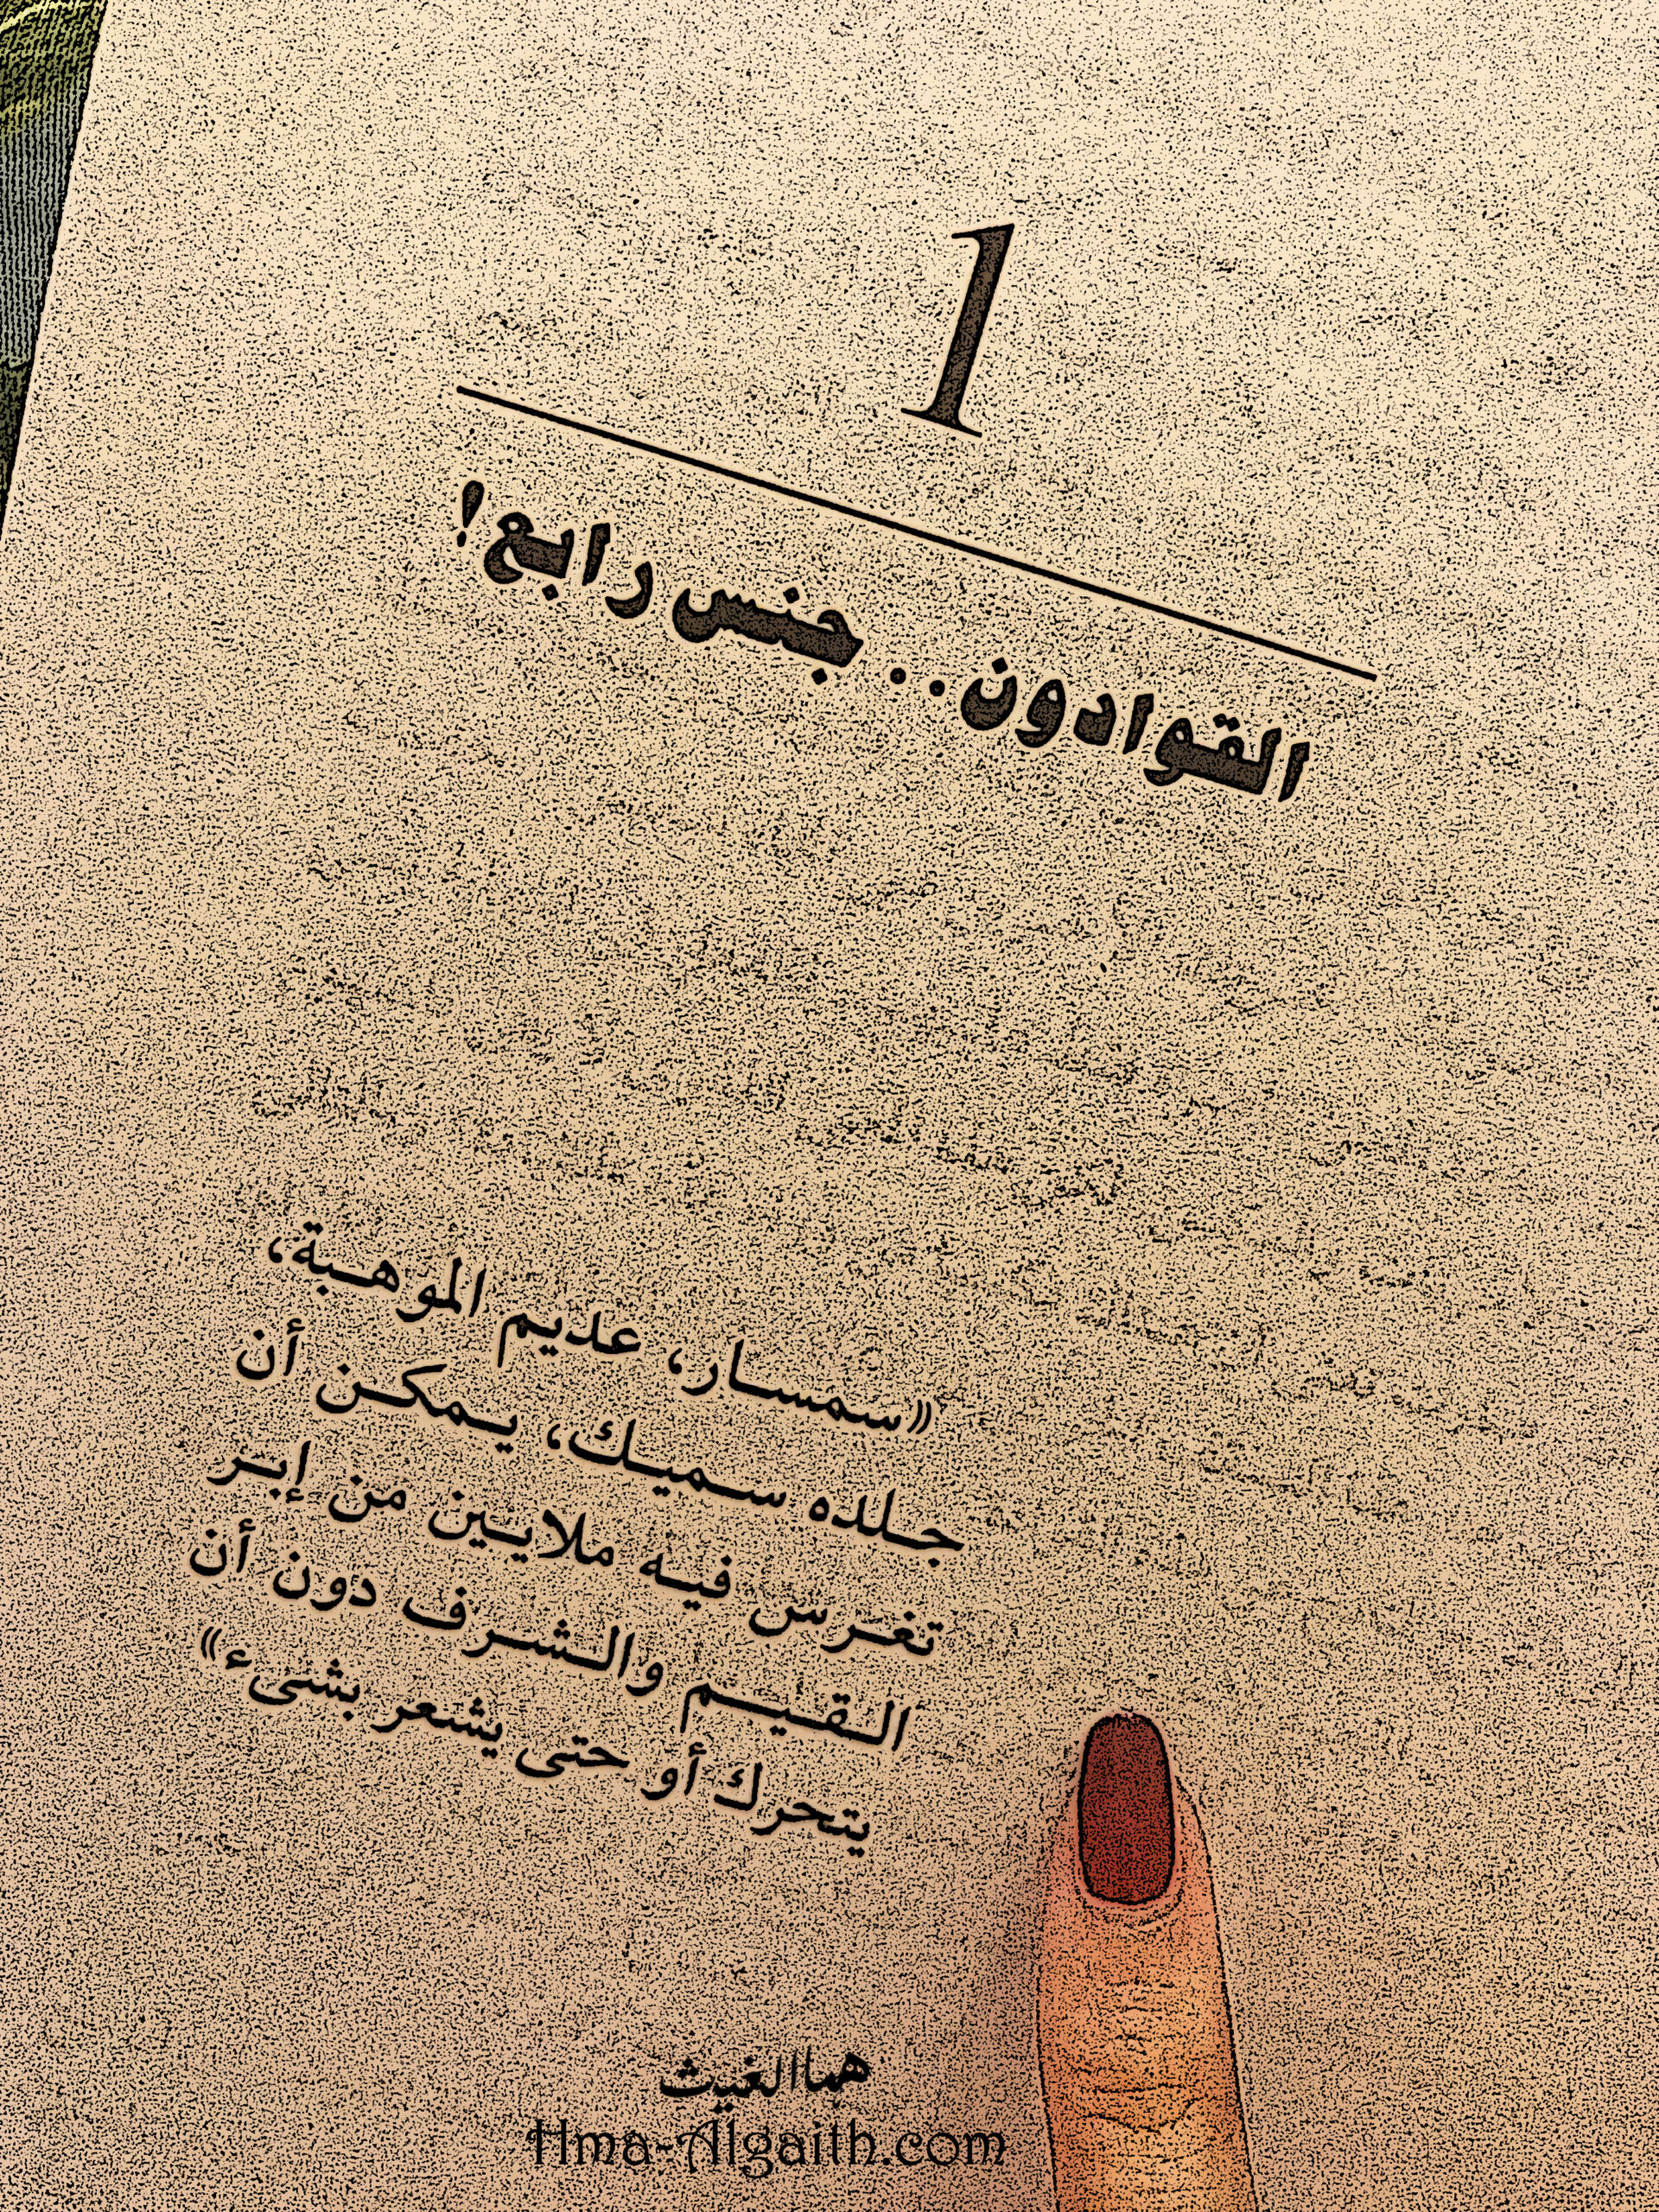 1
القوادون.. جنس رابع!
«سمسار، عديم الموهبة،
جلده سميك، يمكن أن
تغرس فيه ملايين من إبر
القيم والشرف دون أن
يتحرك أو حتى يشعر بشىء»
هما الغيث
Hma-Algaith.com